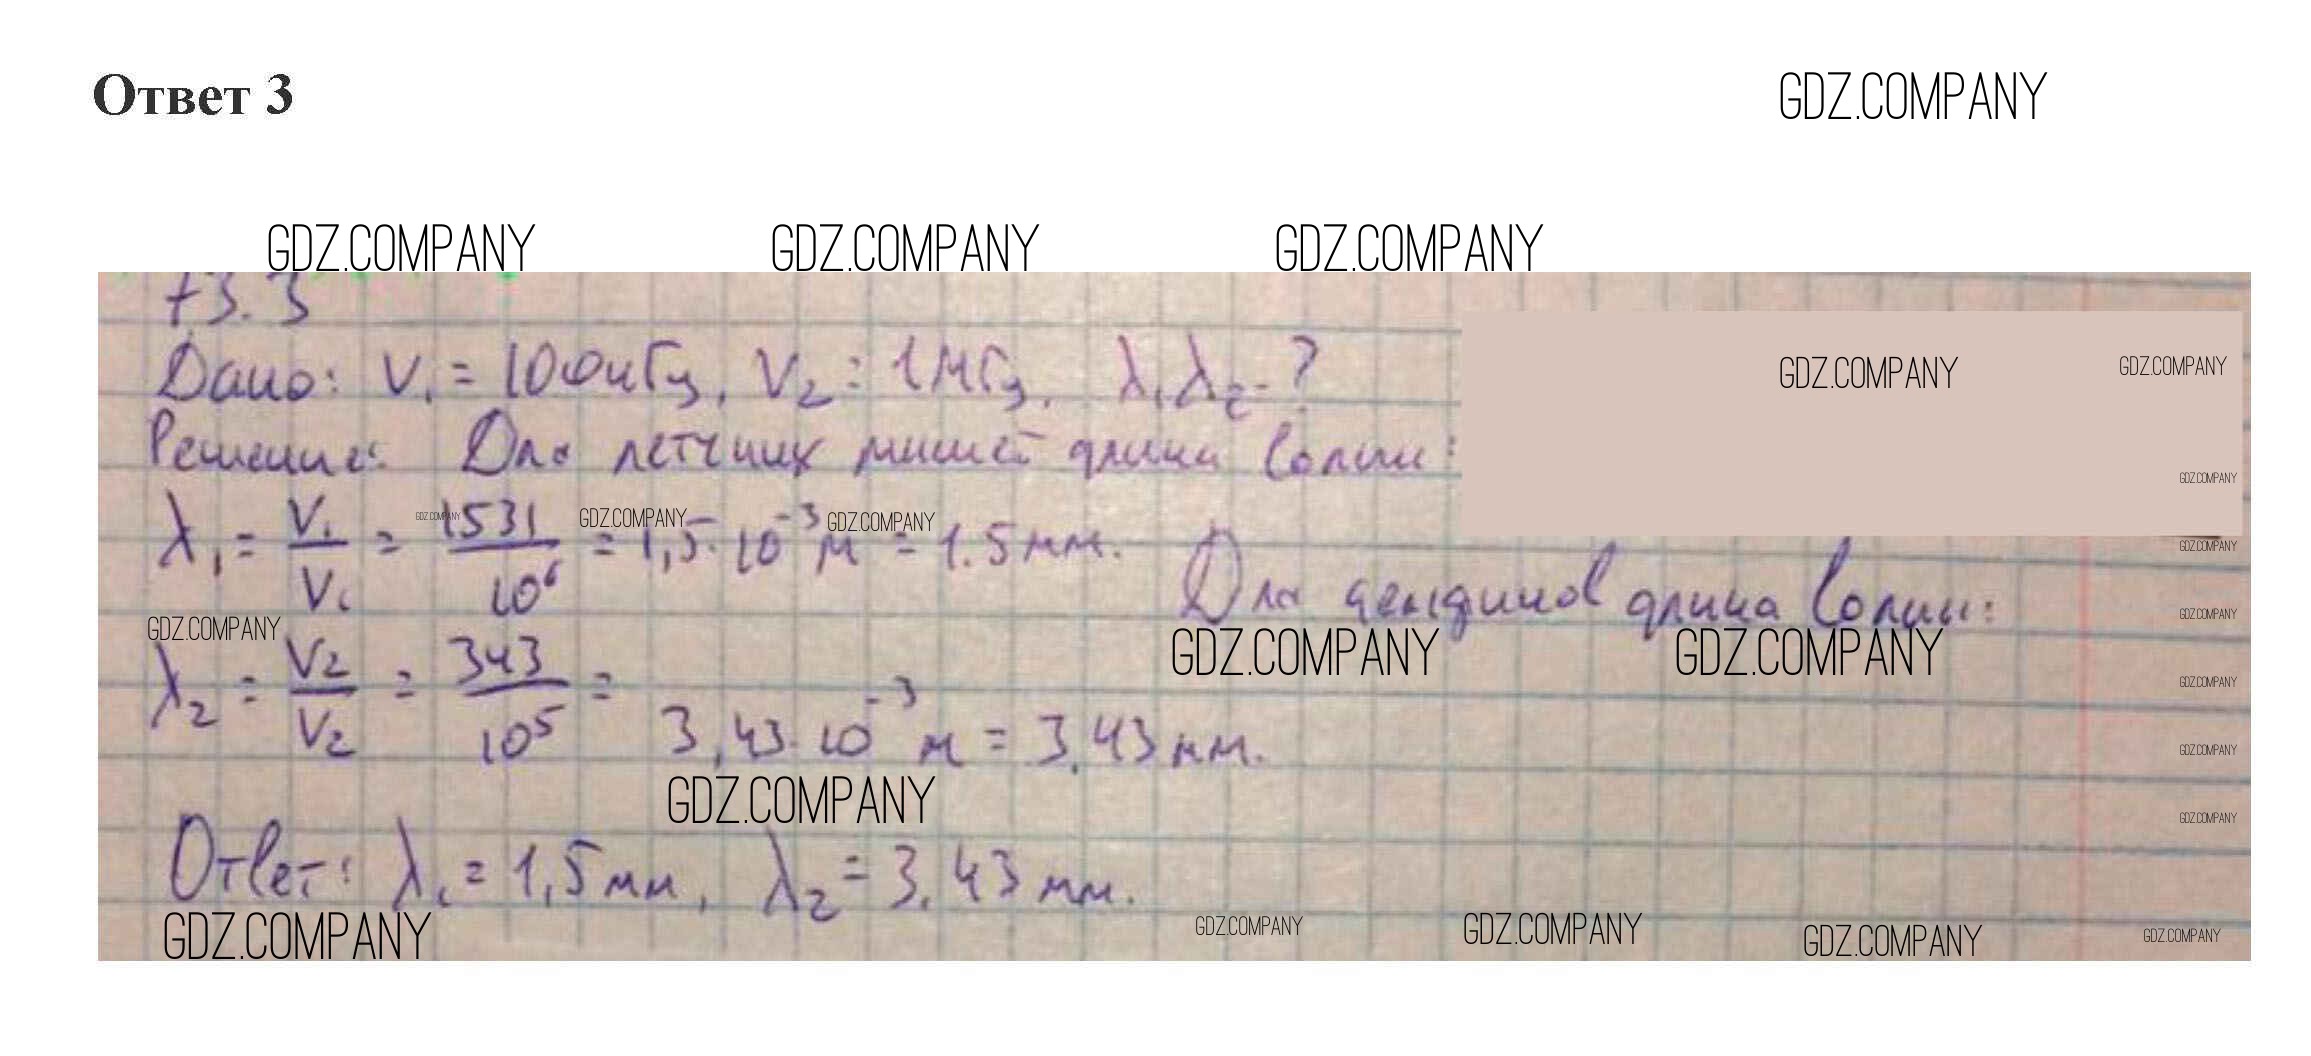 Ответ 3
GDZ.COMPANY
GDZ.COMPANY GDZ.COMPANY GDZ.COMPANY
73.3
Дано: ν₁ = 100кГц, ν₂ = 1МГц. λ₁, λ₂ - ?
GDZ.COMPANY GDZ.COMPANY
Решение: Для летучих мышей длина волны:
GDZ.COMPANY
λ₁ = V₁/V₁ = 1531/10⁶ = 1,5·10⁻³ м = 1.5 мм.
GDZ.COMPANY GDZ.COMPANY GDZ.COMPANY
GDZ.COMPANY
Для дельфинов длина волны:
GDZ.COMPANY
GDZ.COMPANY
λ₂ = V₂/V₂ = 343/10⁵ =
GDZ.COMPANY GDZ.COMPANY
GDZ.COMPANY
3,43·10⁻³ м = 3,43 мм.
GDZ.COMPANY
GDZ.COMPANY
GDZ.COMPANY
Ответ: λ₁ = 1,5 мм, λ₂ = 3,43 мм.
GDZ.COMPANY GDZ.COMPANY GDZ.COMPANY GDZ.COMPANY GDZ.COMPANY